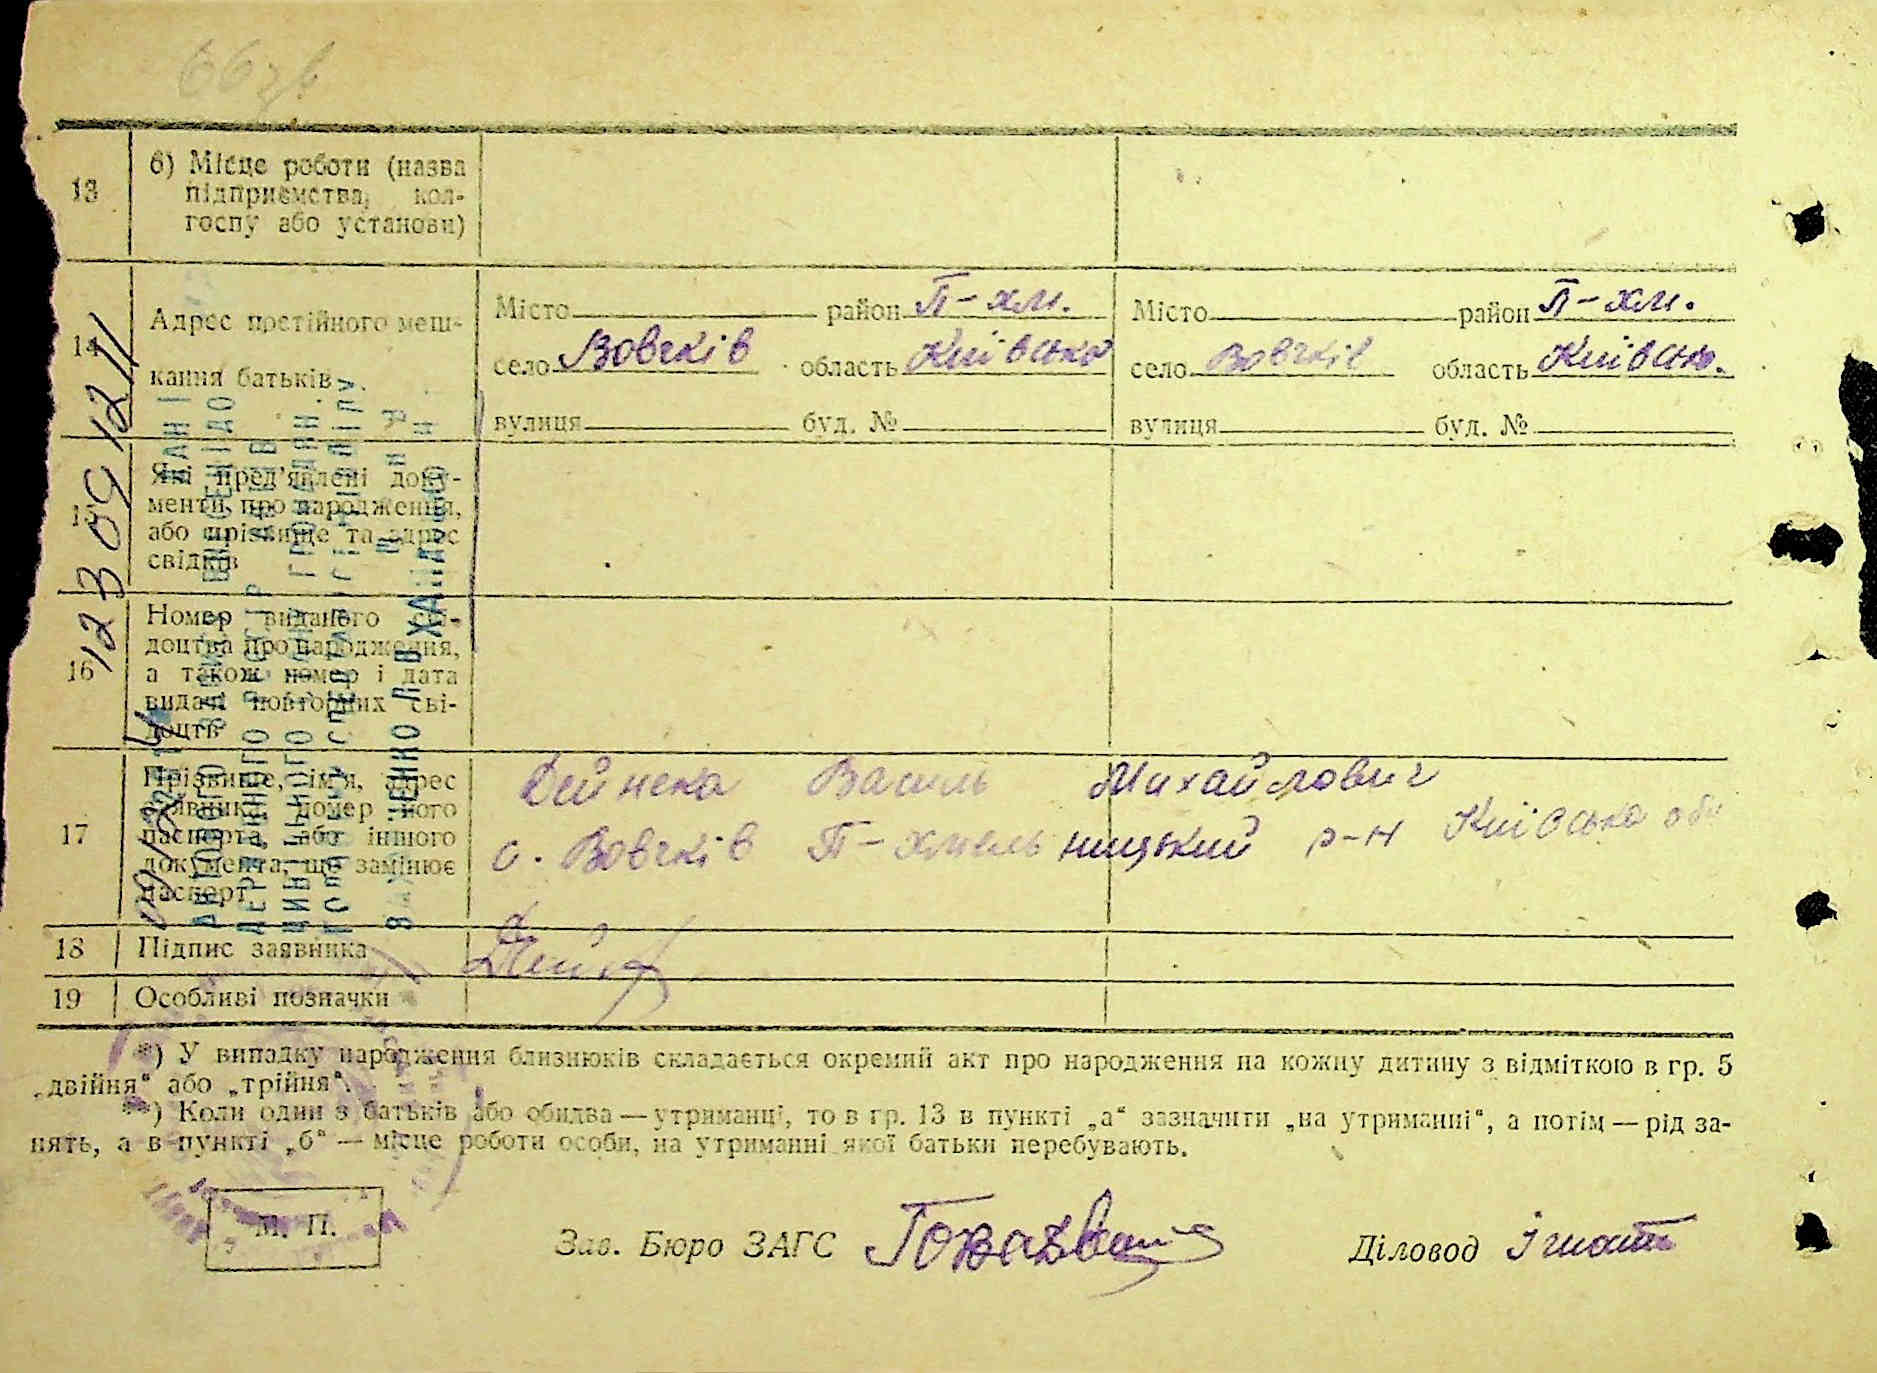 66 зв
13 б) Місце роботи (назва
підприємства, кол-
госпу або установи)
14 Адрес постійного меш-
кання батьків
Місто район П-хм. Місто район П-хм.
село Вовчків область Київська село Вовчків область Київськ.
вулиця буд. № вулиця буд. №
15 Які пред'явлені доку-
менти про народження,
або прізвище та адрес
свідків
16 Номер виданого сві-
доцтва про народження,
а також номер і дата
видачі повторних сві-
доцтв
17 Прізвище, ім'я, адрес
заявника, номер його
паспорта, або іншого
документа, що замінює
паспорт
Дейнека Василь Михайлович
с. Вовчків П-Хмельницький р-н Київська обл
18 Підпис заявника Дейн
19 Особливі позначки
*) У випадку народження близнюків складається окремий акт про народження на кожну дитину з відміткою в гр. 5
„двійня“ або „трійня“.
**) Коли один з батьків або обидва — утриманці, то в гр. 13 в пункті „а“ зазначити „на утриманні“, а потім — рід за-
нять, а в пункті „б“ — місце роботи особи, на утриманні якої батьки перебувають.
М. П.
Зав. Бюро ЗАГС Діловод